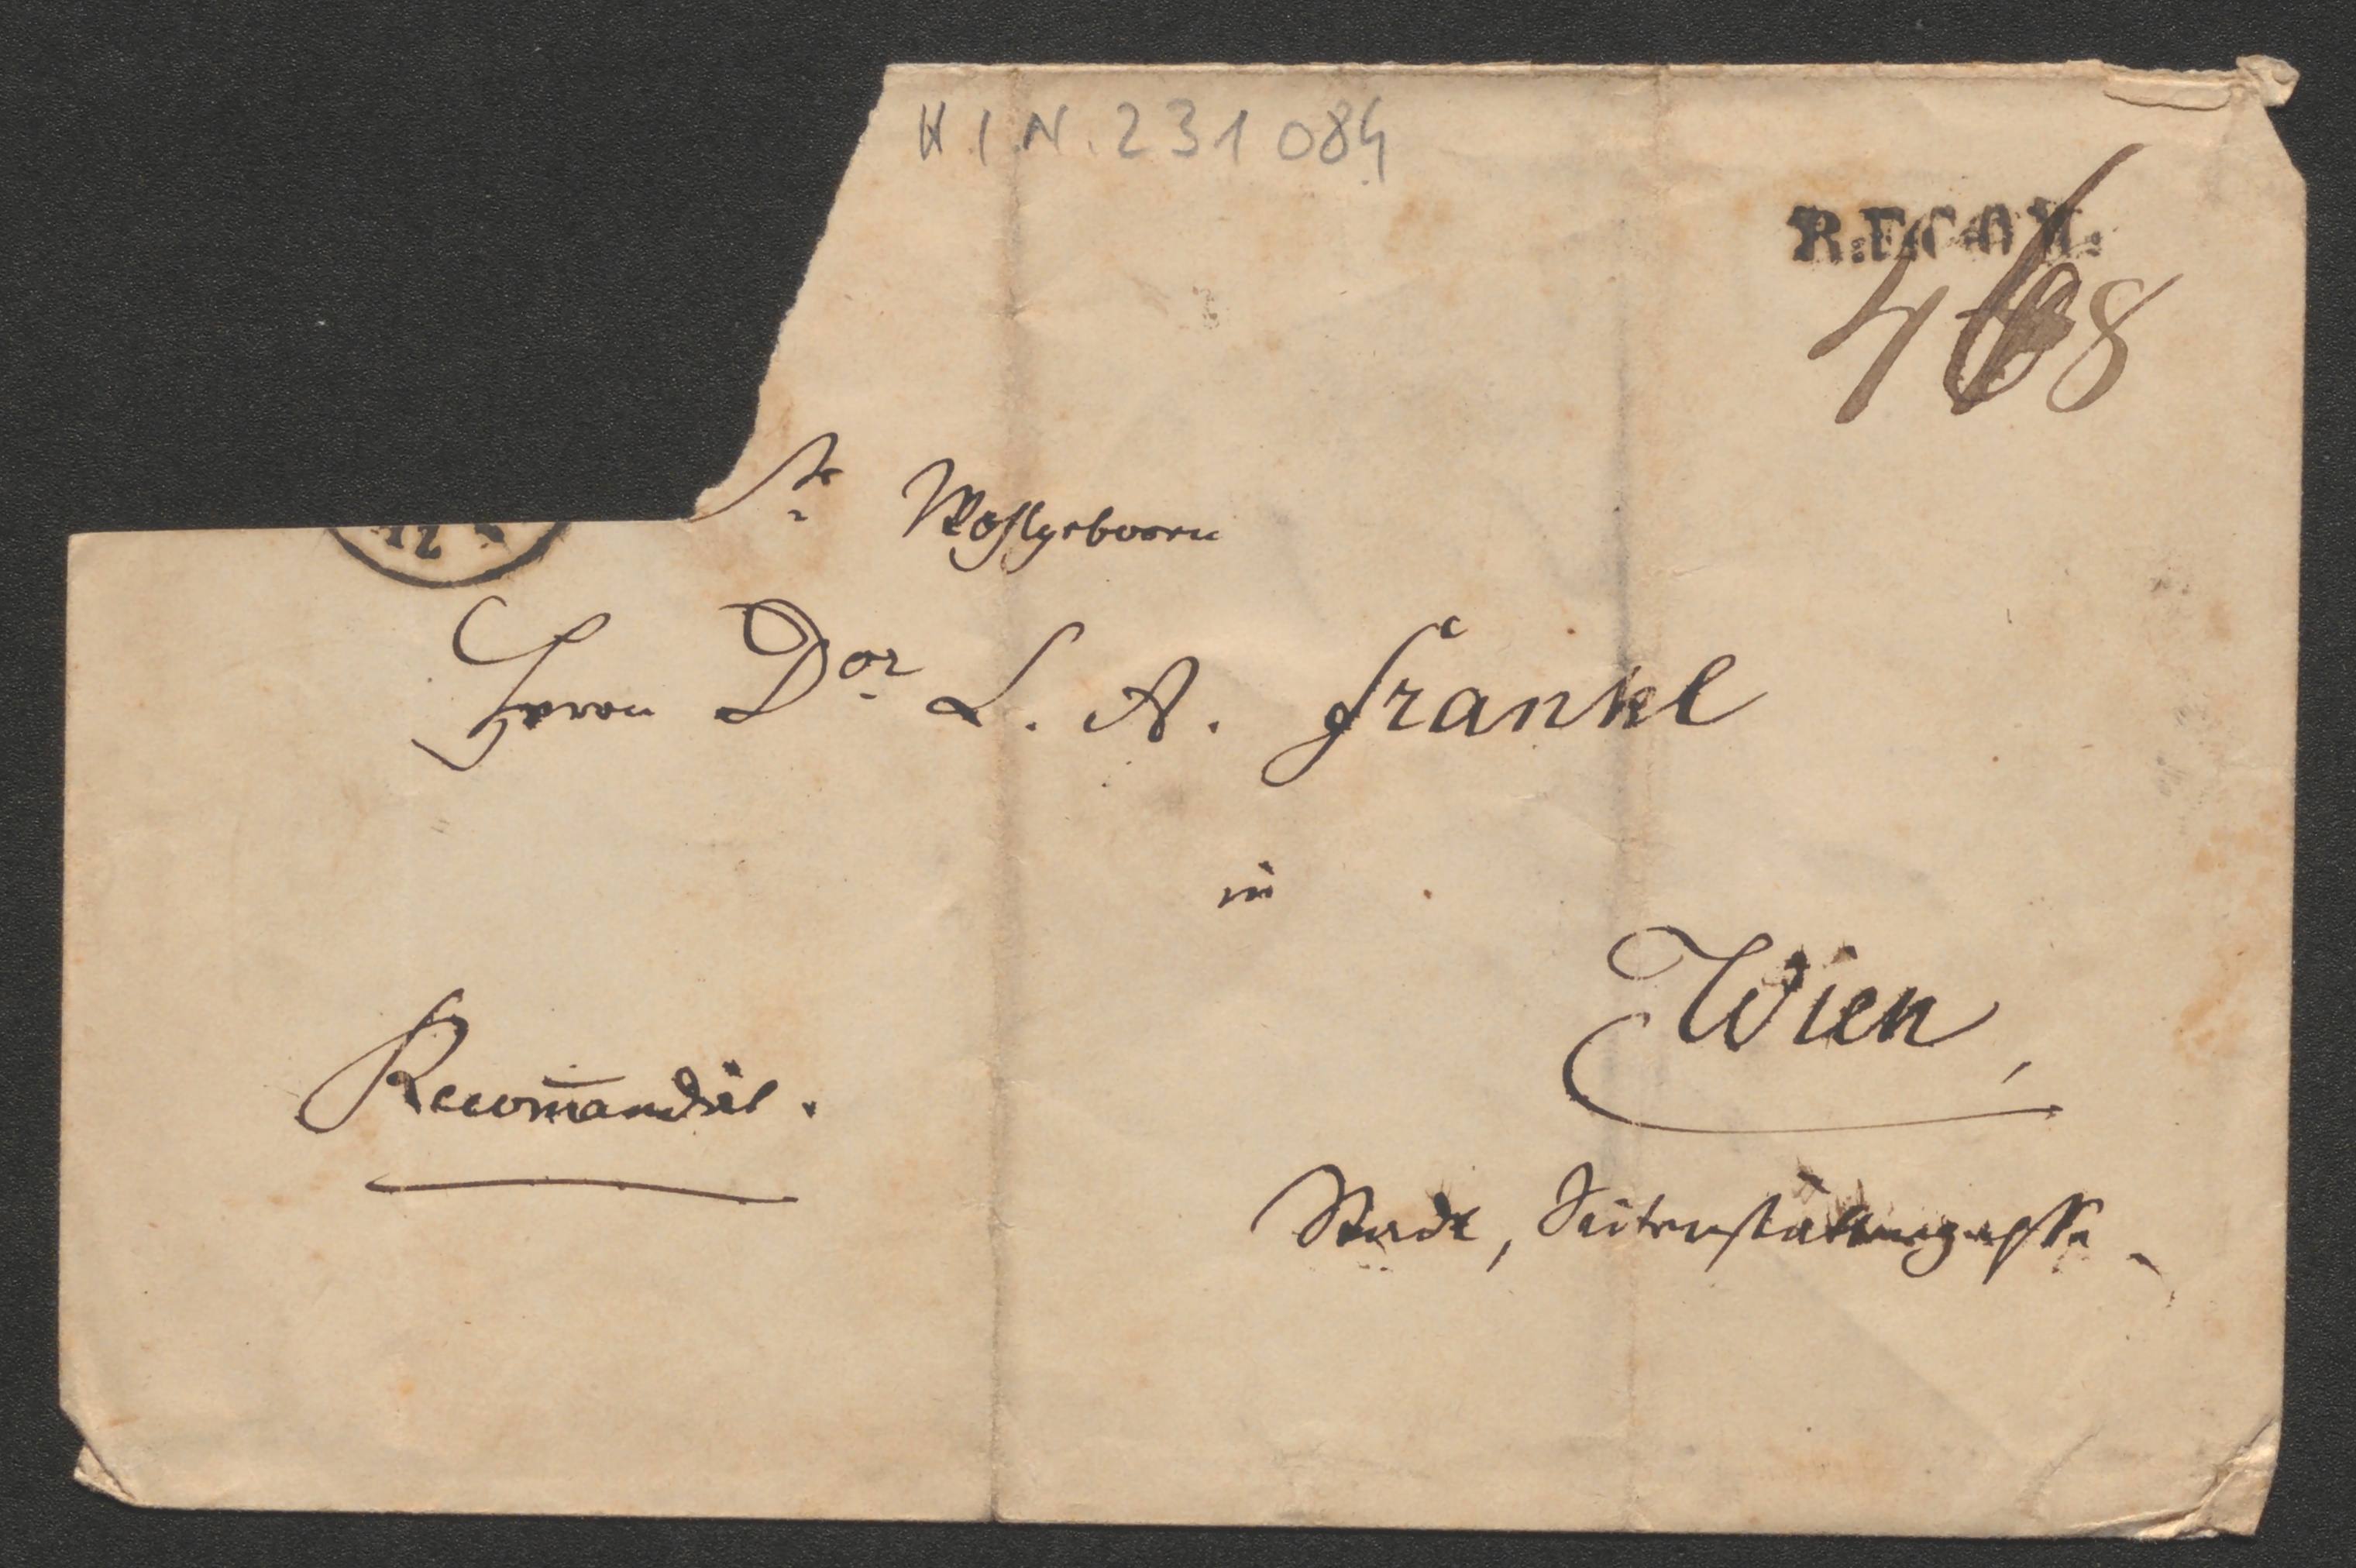 H.I.N. 231084
RECOM.
Sr Wohlgeboren
Herrn Dor L. A. Fränkl
in
Wien,
Recom̄andirt.
Stadt, Seitenstättengasse